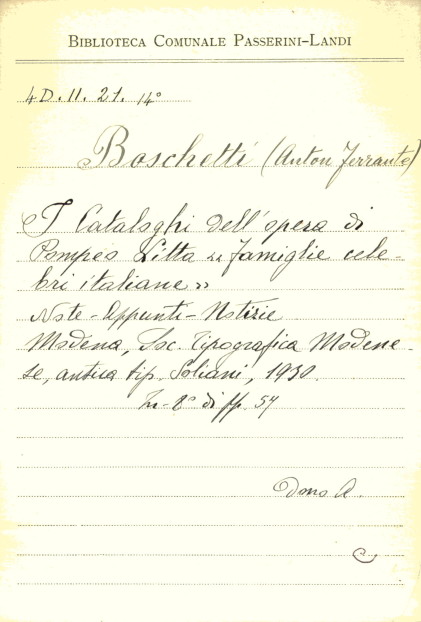 BIBLIOTECA COMUNALE PASSERINI-LANDI
4D. II. 21. 14°
Boschetti (Anton Ferrante)
I Cataloghi dell'opera di
Pompeo Litta « Famiglie cele-
bri italiane »
Note - Appunti - Notizie
Modena, Soc. Tipografica Modene-
se, antica tip. Soliani, 1930.
In-8° di pp. 54
Dono A.
C